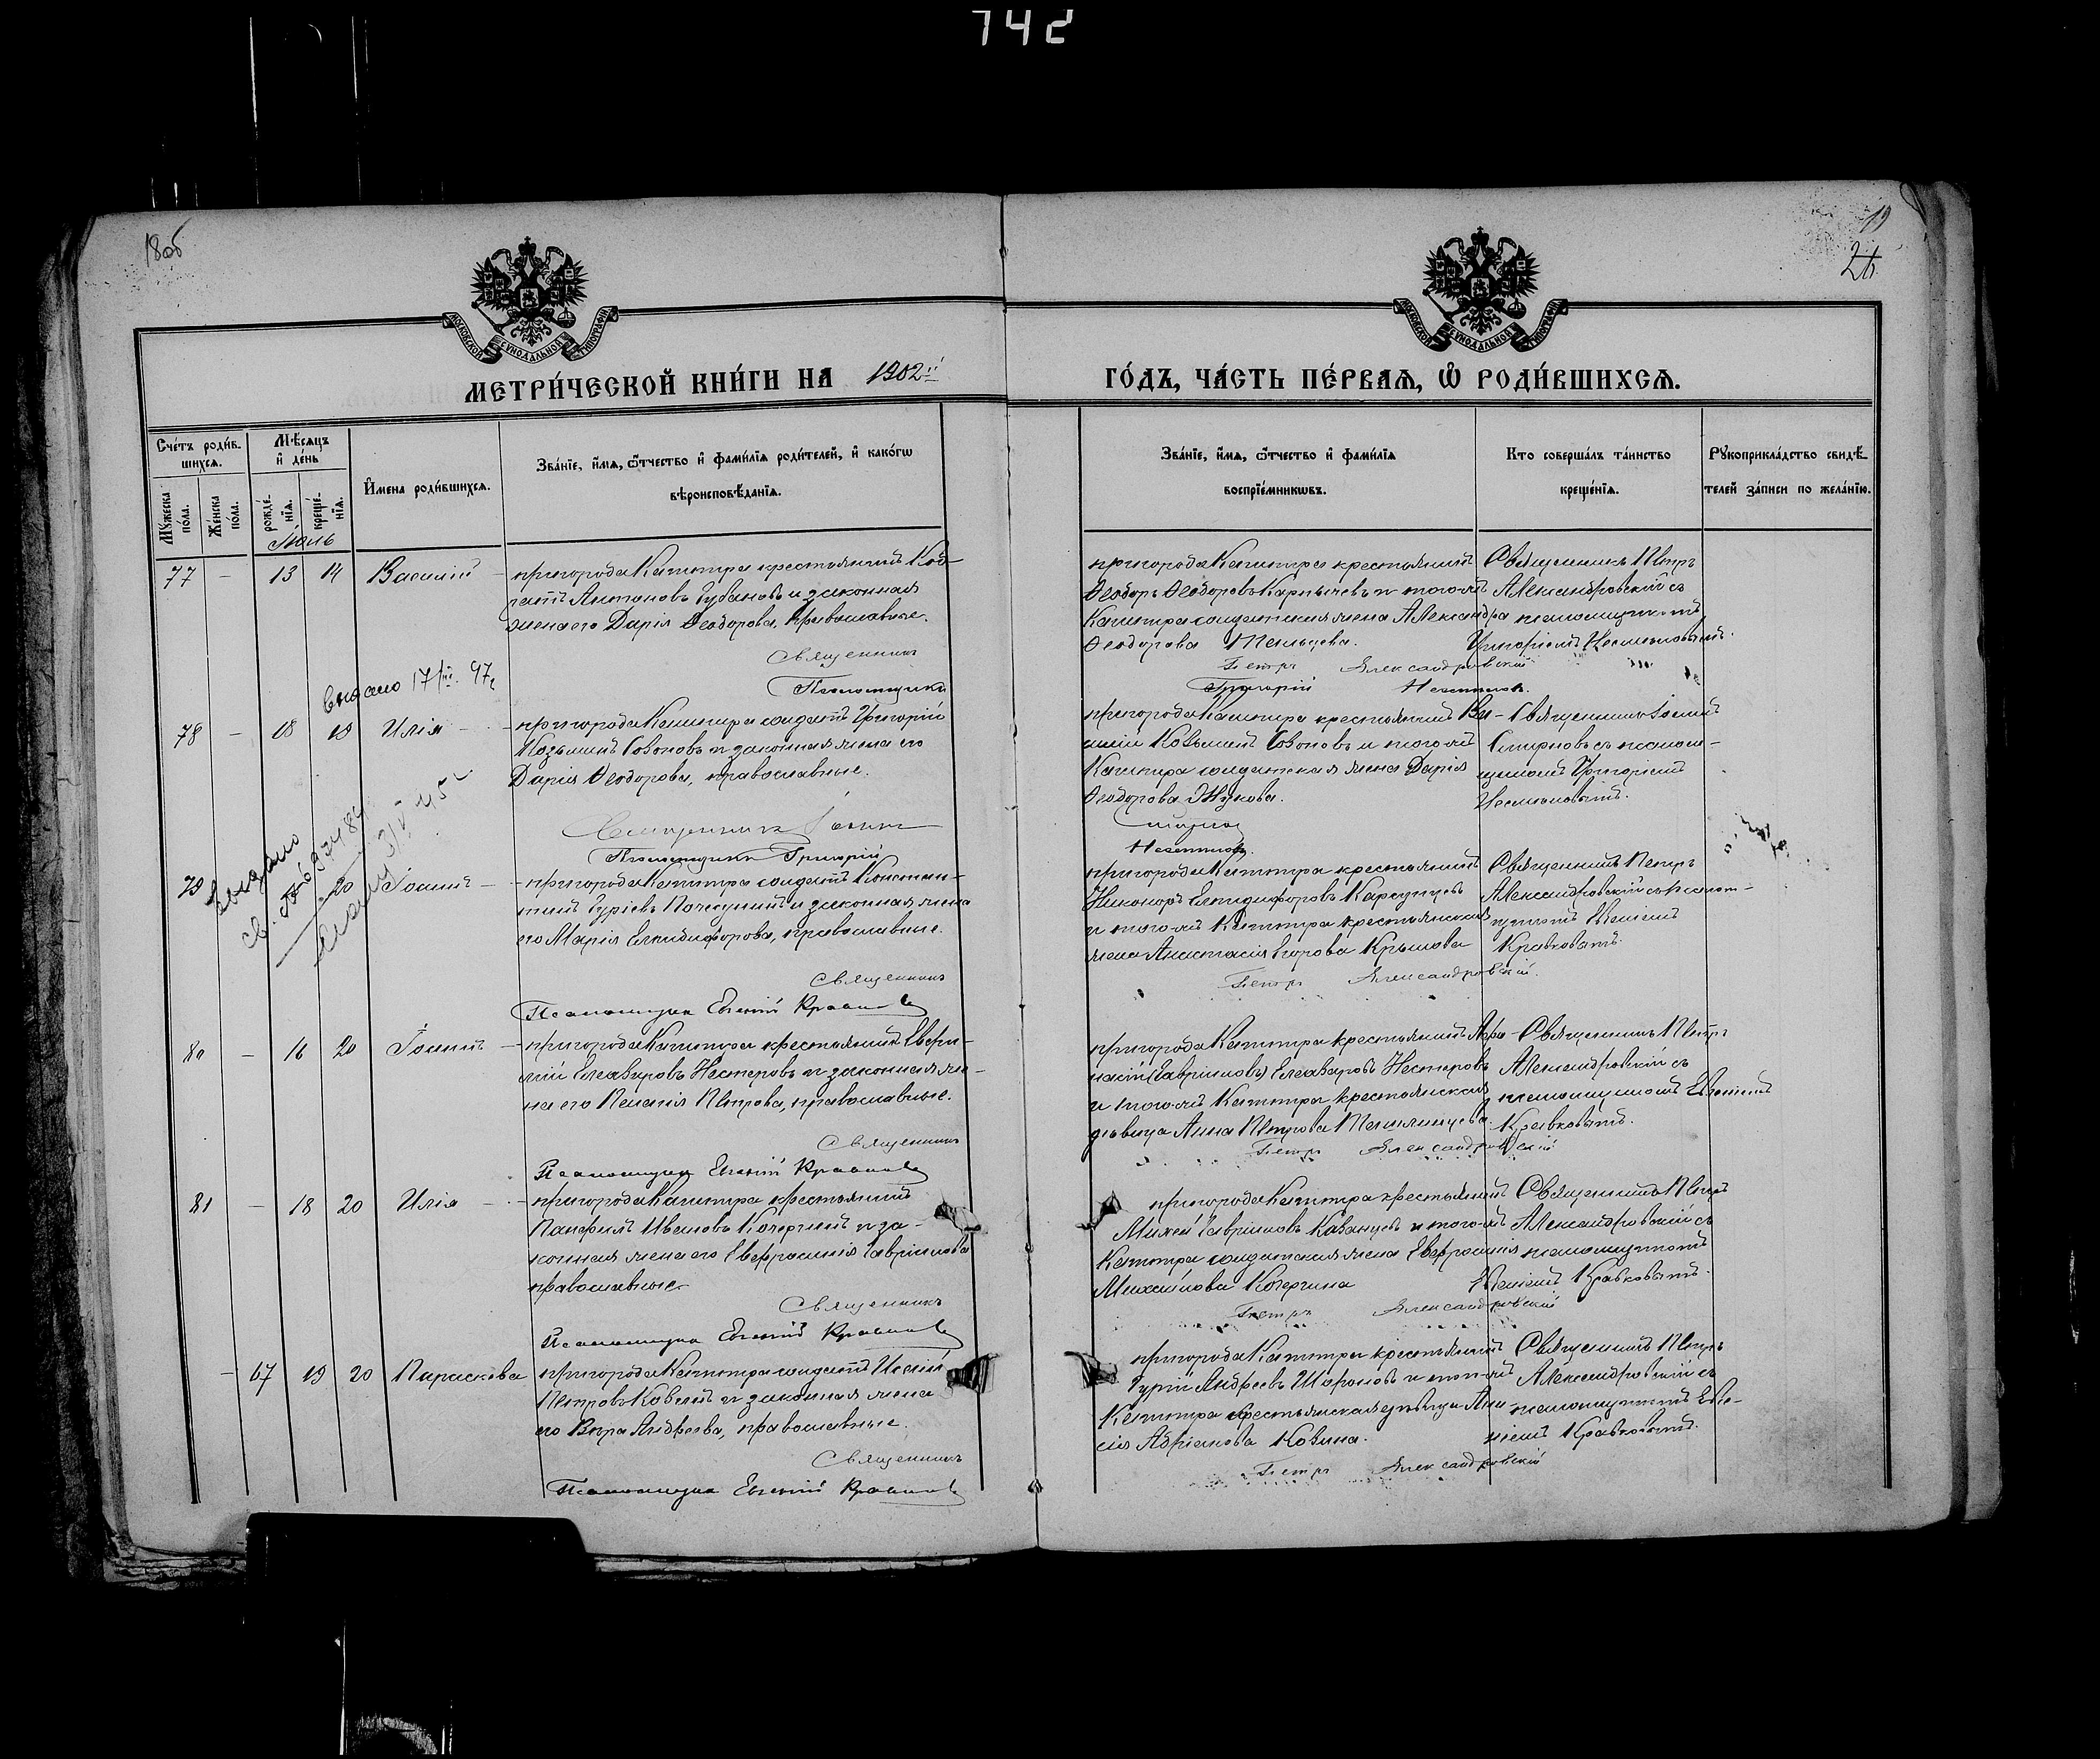 742
18об
19
26
МОСКОВСКОЙ СѴНОДАЛЬНОЙ ТИПОГРАФІИ
МОСКОВСКОЙ СѴНОДАЛЬНОЙ ТИПОГРАФІИ
МЕТРИ́ЧЕСКОЙ КНИ́ГИ НА 1902й
ГО́ДЪ, ЧА́СТЬ ПЕ́РВАѦ, Ѡ҆ РОДИ́ВШИХСѦ.
Сче́тъ роди́в-
шихсѧ.
Мꙋ́жеска по́ла.
Же́нска по́ла.
Мѣ́сѧцъ
и҆ де́нь
рожде́-
нїѧ.
креще́-
нїѧ.
И҆мена роди́вшихсѧ.
Зва́нїе, и҆́мѧ, ѻ҆́тчество и҆ фами́лїѧ роди́телей, и҆ како́гѡ
вѣроисповѣ́данїѧ.
Зва́нїе, и҆́мѧ, ѻ҆́тчество и҆ фами́лїѧ
воспрїе́мникѡвъ.
Кто соверша́лъ та́инство
креще́нїѧ.
Рꙋкоприкла́дство свидѣ́-
телей за́писи по жела́нїю.
Іюль
77 - 13 14 Василій - пригорода Кашпира крестьянинъ Код-
ратъ Антоновъ Губановъ и законная
жена его Дарія Ѳеодорова, православные.
Священникъ
Псаломщикъ
пригорода Кашпира крестьянинъ
Ѳеодоръ Ѳеодоровъ Карпычевъ и того-жъ
Кашпира солдатская жена Александра
Ѳеодорова
Петръ Александровскій
Григорій
Священникъ Петръ
Александровскій съ
псаломщикомъ
Григоріемъ
выдано 17
78 - 18 19 Илія - пригорода Кашпира солдатъ Григорій
Козьминъ и законная жена его
Дарія Ѳеодорова, православные.
Священникъ Іоаннъ
Псаломщикъ Григорій
пригорода Кашпира крестьянинъ Ва-
силій Козьминъ и того-жъ
Кашпира солдатская жена Дарія
Ѳеодорова Жукова.
Смирнов
Священникъ Іоаннъ
Смирновъ съ псалом-
щикомъ Григоріемъ
выдано
79 20 Іоаннъ - пригорода Кашпира солдатъ Констан-
тинъ Гуріевъ и законная жена
его Марія Елпидифорова, православные.
Священникъ
Псаломщикъ Евгеній
пригорода Кашпира крестьянинъ
Никоноръ Елпидифоровъ
и того-жъ Кашпира крестьянская
жена Анастасія Егорова Крылова
Петръ Александровскій
Священникъ Петръ
Александровскій съ псалом-
щикомъ Евгеніемъ
Кравковымъ.
80 - 16 20 Іоаннъ - пригорода Кашпира крестьянинъ
Елеазаровъ Нестеровъ и законная же-
на его Пелагія Петрова, православные.
Священникъ
Псаломщикъ Евгеній
пригорода Кашпира крестьянинъ Афа-
насій (Гавріиловъ) Елеазаровъ Нестеровъ
и того-жъ Кашпира крестьянская
дѣвица Анна Петрова
Петръ Александровскій
Священникъ Петръ
Александровскій съ
псаломщикомъ Евгеніемъ
Кравковымъ.
81 - 18 20 Илія - пригорода Кашпира крестьянинъ
Панфилъ Ивановъ Кочергинъ и за-
конная жена его Евфросинія Гавріилова
православные
Священникъ
Псаломщикъ Евгеній
пригорода Кашпира крестьянинъ
Михей Гавріиловъ Казанцевъ и того-жъ
Кашпира солдатская жена Евфросинія
Михайлова Кочергина
Петръ Александровскій
Священникъ Петръ
Александровскій съ
псаломщикомъ
Евгеніемъ Кравковымъ.
- 67 19 20 Параскева пригорода Кашпира солдатъ Исаій
Петровъ и законная жена
его Вѣра Андреева, православные.
Священникъ
Псаломщикъ Евгеній
пригорода Кашпира крестьянинъ
Гурій Андреевъ Шароновъ и того-жъ
Кашпира крестьянская дѣвица Ани-
сія Адріанова
Петръ Александровскій
Священникъ Петръ
Александровскій съ
псаломщикомъ Евге-
ніемъ Кравковымъ.